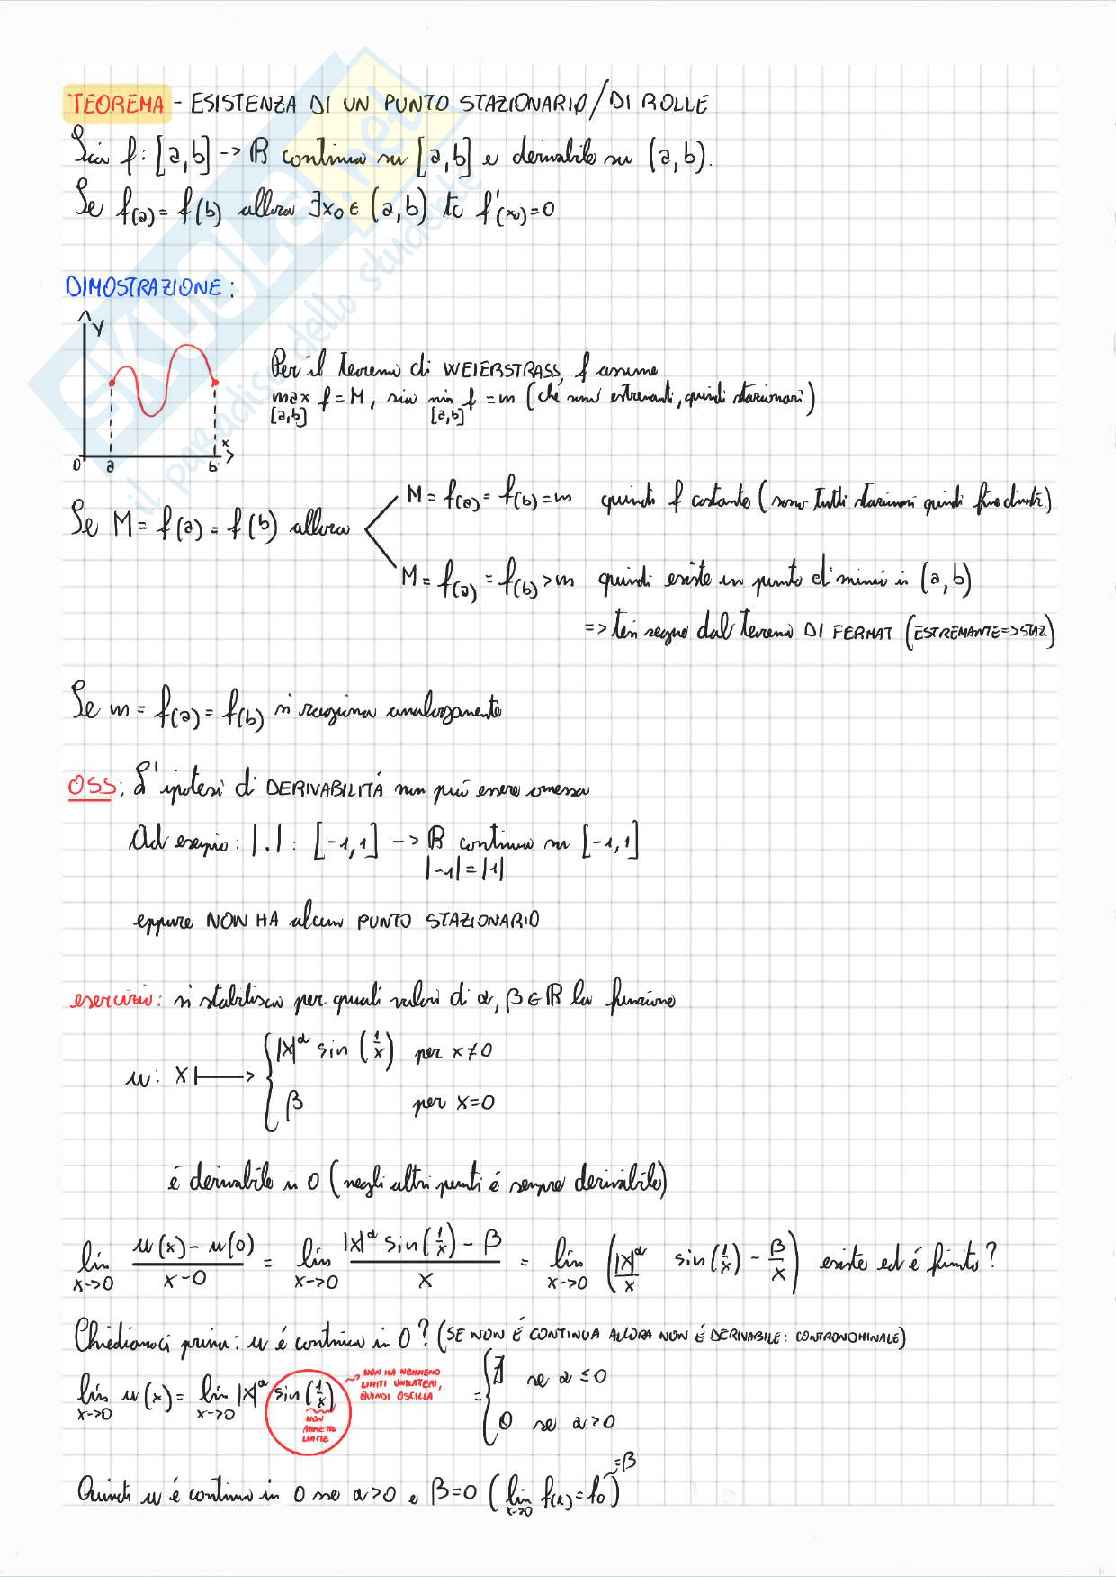 TEOREMA - ESISTENZA DI UN PUNTO STAZIONARIO/DI ROLLE
Sia f: [a,b] -> R continua su [a,b] e derivabile su (a,b).
Se f(a) = f(b) allora ∃x0 ∈ (a,b) tc f'(x0)=0
DIMOSTRAZIONE:
y
x
0 a b
Per il teorema di WEIERSTRASS, f assume
max f = M, sia min f = m (che sono estremanti, quindi stazionari)
[a,b] [a,b]
M = f(a) = f(b) = m quindi f costante (sono tutti stazionari quindi
Se M = f(a) = f(b) allora
M = f(a) = f(b) > m quindi esiste un punto di minimo in (a,b)
=> tesi segue dal teorema DI FERMAT (ESTREMANTE=>STAZ)
Se m = f(a) = f(b) si ragiona analogamente
OSS: L'ipotesi di DERIVABILITÁ non può essere omessa
Ad esempio: |.| : [-1,1] -> R continua su [-1,1]
|-1| = |1|
eppure NON HA alcun PUNTO STAZIONARIO
esercizio: si stabilisca per quali valori di α, β ∈ R la funzione
u: x ⟼ { |x|^α sin (1/x) per x≠0
β per x=0
é derivabile in 0 (negli altri punti é sempre derivabile)
lim x->0 (u(x) - u(0))/(x-0) = lim x->0 (|x|^α sin(1/x) - β)/x = lim x->0 (|x|^α/x sin(1/x) - β/x) esiste ed é finito?
Chiediamoci prima: u é continua in 0? (SE NON É CONTINUA ALLORA NON É DERIVABILE: CONTRONOMINALE)
NON HA NEMMENO LIMITI UNILATERI, QUINDI OSCILLA
lim x->0 u(x) = lim x->0 |x|^α sin(1/x) = { ∄ se α ≤ 0
NON AMMETTE LIMITE
0 se α > 0
Quindi u é continua in 0 se α>0 e β=0 (lim x->0 f(x) = f0) =β